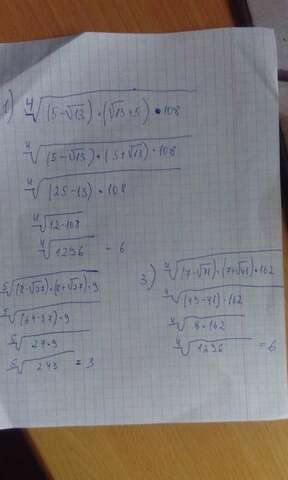 1) ⁴√(5-√13)·(√13+5)·108
⁴√(5-√13)·(5+√13)·108
⁴√(25-13)·108
⁴√12·108
⁴√1296 = 6
⁵√(8-√37)·(8+√37)·9
⁵√(64-37)·9
⁵√27·9
⁵√243 = 3
3) ⁴√(7-√41)·(7+√41)·162
⁴√(49-41)·162
⁴√8·162
⁴√1296 = 6